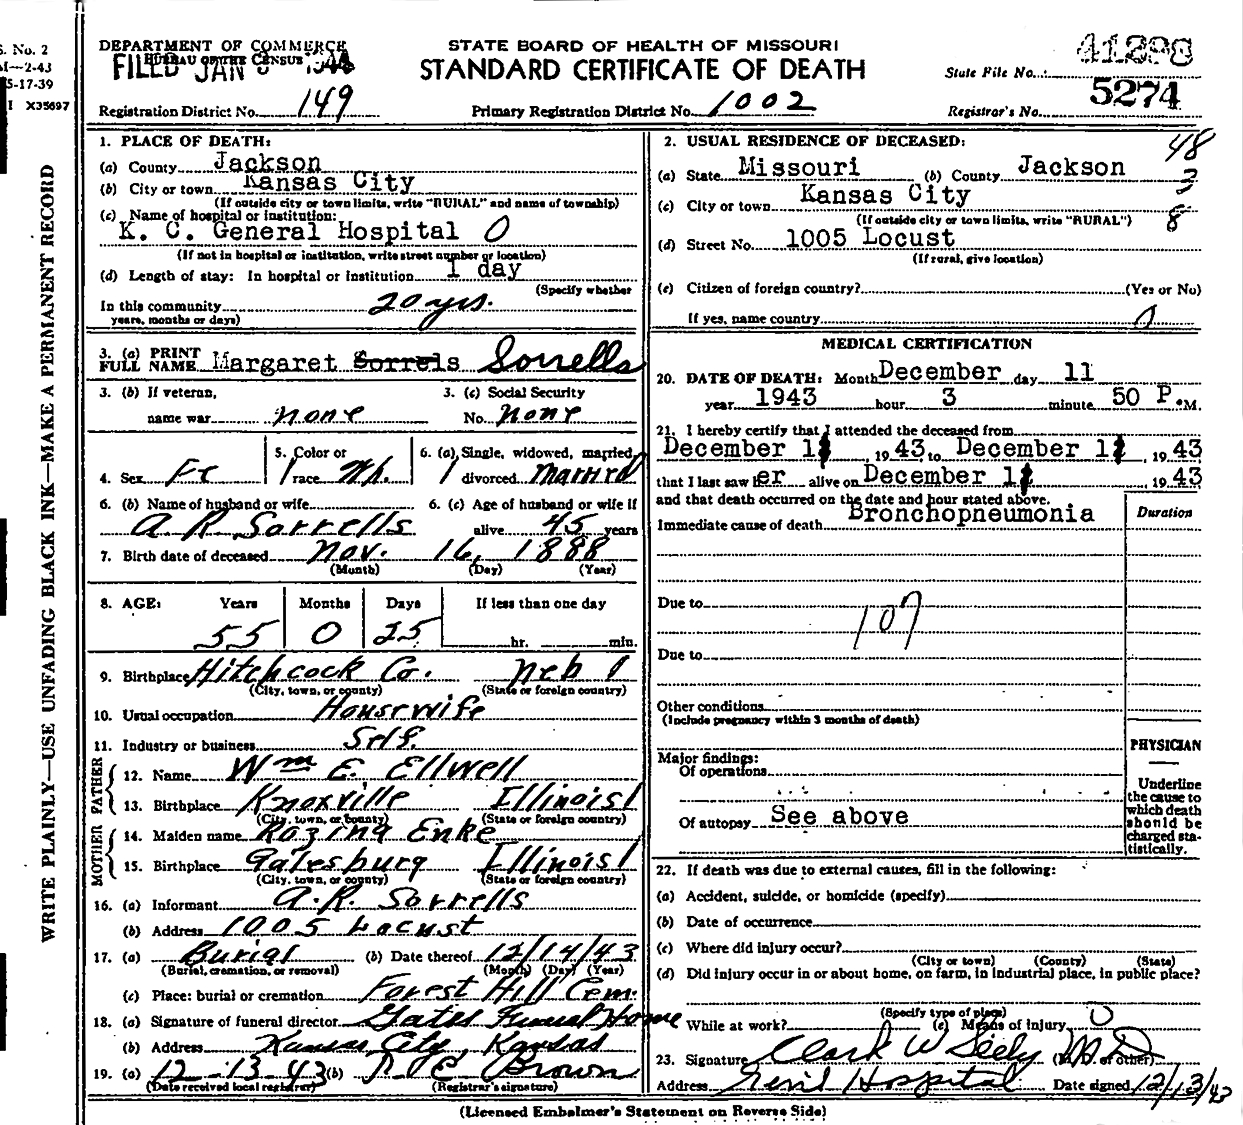 S. No. 2
M—2-43
5-17-39
I X35697
WRITE PLAINLY—USE UNFADING BLACK INK—MAKE A PERMANENT RECORD
DEPARTMENT OF COMMERCE
BUREAU OF THE CENSUS
FILED JAN
STATE BOARD OF HEALTH OF MISSOURI
STANDARD CERTIFICATE OF DEATH
State File No. 41298
Registration District No. 149
Primary Registration District No. 1002
Registrar's No. 5274
1. PLACE OF DEATH:
(a) County Jackson
(b) City or town Kansas City
(If outside city or town limits, write "RURAL" and name of township)
(c) Name of hospital or institution:
K. C. General Hospital 0
(If not in hospital or institution, write street number or location)
(d) Length of stay: In hospital or institution 1 day
(Specify whether
In this community 20 yrs.
years, months or days)
3. (a) PRINT FULL NAME Margaret Sorrels Sorrells
3. (b) If veteran, name war none
3. (c) Social Security No. none
4. Sex Fe
5. Color or race Wh.
6. (a) Single, widowed, married, divorced married
6. (b) Name of husband or wife A. R. Sorrells
6. (c) Age of husband or wife if alive 45 years
7. Birth date of deceased Nov. 16, 1888
(Month) (Day) (Year)
8. AGE: Years Months Days If less than one day
55 0 25 hr. min.
9. Birthplace Hitchcock Co. Neb 1
(City, town, or county) (State or foreign country)
10. Usual occupation Housewife
11. Industry or business Self.
FATHER
12. Name Wm E. Ellwell
13. Birthplace Knoxville Illinois 1
(City, town, or county) (State or foreign country)
MOTHER
14. Maiden name Rozina Enke
15. Birthplace Galesburg Illinois 1
(City, town, or county) (State or foreign country)
16. (a) Informant A. R. Sorrells
(b) Address 1005 Locust
17. (a) Burial (b) Date thereof 12/14/43
(Burial, cremation, or removal) (Month) (Day) (Year)
(c) Place: burial or cremation Forest Hill Cem.
18. (a) Signature of funeral director Gates Funeral Home
(b) Address Kansas City, Kansas
19. (a) 12-13-43 (b) Brown
(Date received local registrar) (Registrar's signature)
2. USUAL RESIDENCE OF DECEASED: 48
(a) State Missouri (b) County Jackson 3
(c) City or town Kansas City
(If outside city or town limits, write "RURAL") 8
(d) Street No. 1005 Locust
(If rural, give location)
(e) Citizen of foreign country? (Yes or No)
If yes, name country 0
MEDICAL CERTIFICATION
20. DATE OF DEATH: Month December day 11
year 1943 hour 3 minute 50 P.M.
21. I hereby certify that I attended the deceased from
December 11, 1943 to December 11, 1943
that I last saw her alive on December 11, 1943
and that death occurred on the date and hour stated above.
Immediate cause of death Bronchopneumonia
Duration
Due to
107
Due to
Other conditions
(Include pregnancy within 3 months of death)
Major findings:
Of operations
Of autopsy See above
PHYSICIAN
Underline the cause to which death should be charged statistically.
22. If death was due to external causes, fill in the following:
(a) Accident, suicide, or homicide (specify)
(b) Date of occurrence
(c) Where did injury occur?
(City or town) (County) (State)
(d) Did injury occur in or about home, on farm, in industrial place, in public place?
(Specify type of place)
While at work? (e) Means of injury 0
23. Signature Clark W Seely M D (M.D. or other)
Address Genl Hospital Date signed 12/13/43
(Licensed Embalmer's Statement on Reverse Side)